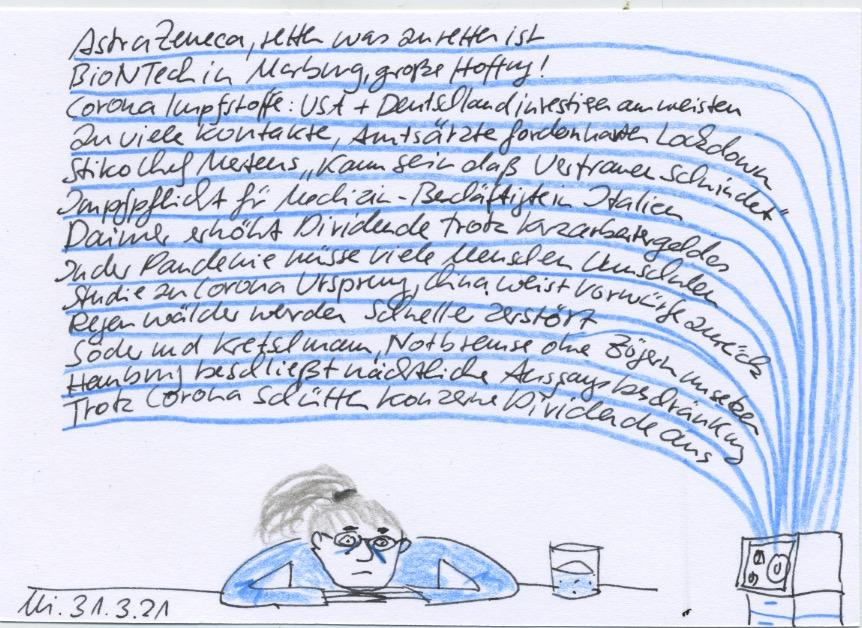 AstraZeneca, retten was zu retten ist
BioNTech in Marburg, große Hoffng!
Corona Impfstoffe: USA + Deutschland investieren am meisten
Zu viele Kontakte, Amtsärzte fordern harten Lockdown
Stiko Chef Mertens „Kann sein daß Vertrauen schwindet"
Impfpflicht für Medizin-Beschäftigte in Italien
Daimler erhöht Dividende trotz Kurzarbeitergeldes
In der Pandemie müsse viele Menschen Umschulen
Studie zu Corona Ursprung, China weist Vorwürfe zurück
Regenwälder werden schneller zerstört
Söder und Kretschmann, Notbremse ohne Zögern umsetzen
Hamburg beschließt nächtliche Ausgangsbeschränkung
Trotz Corona schütten Konzerne Dividende aus
Mi. 31.3.21